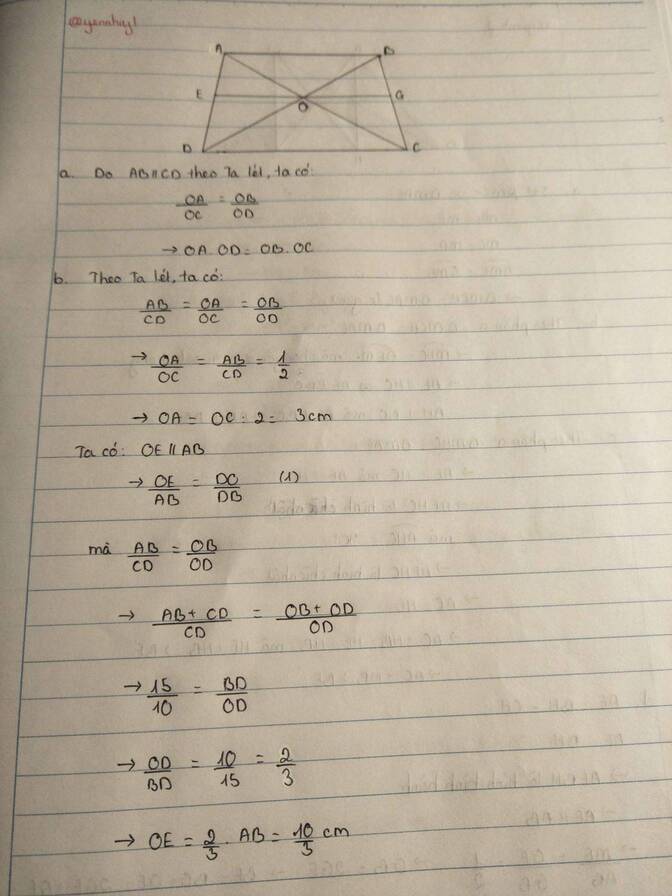 @yennhiy1
A B
E G
O
D C
a. Do AB//CD theo Ta lét, ta có:
OA/OC = OB/OD
→ OA.OD = OB.OC
b. Theo Ta lét, ta có:
AB/CD = OA/OC = OB/OD
→ OA/OC = AB/CD = 1/2
→ OA = OC : 2 = 3cm
Ta có: OE // AB
→ OE/AB = DO/DB (1)
mà AB/CD = OB/OD
→ AB + CD/CD = OB + OD/OD
→ 15/10 = BD/OD
→ OD/BD = 10/15 = 2/3
→ OE = 2/3 . AB = 10/3 cm